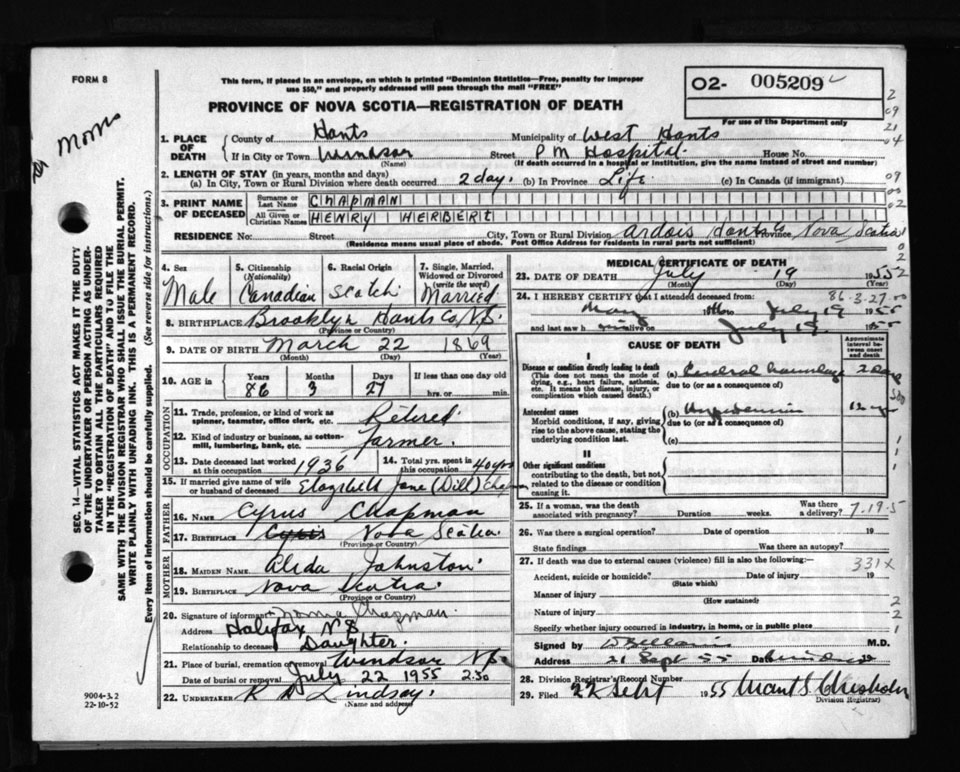 FORM 8
This form, if placed in an envelope, on which is printed "Dominion Statistics—Free, penalty for improper
use $50," and properly addressed will pass through the mail "FREE"
O2- 005209
PROVINCE OF NOVA SCOTIA—REGISTRATION OF DEATH
For use of the Department only
Morris
2
09
21
04
1. PLACE OF DEATH County of Hants Municipality of West Hants
If in City or Town Windsor Street P M Hospital House No.
(Name) (If death occurred in a hospital or institution, give the name instead of street and number)
2. LENGTH OF STAY (in years, months and days)
(a) In City, Town or Rural Division where death occurred 2 day. (b) In Province Life (c) In Canada (if immigrant)
3. PRINT NAME OF DECEASED Surname or Last Name CHAPMAN
All Given or Christian Names HENRY HERBERT
RESIDENCE House No. Street City, Town or Rural Division Ardois Hants Co Province Nova Scotia
(Residence means usual place of abode. Post Office Address for residents in rural parts not sufficient)
4. Sex Male
5. Citizenship (Nationality) Canadian
6. Racial Origin Scotch
7. Single, Married, Widowed or Divorced (write the word) Married
8. BIRTHPLACE Brooklyn Hants Co N.S.
(Province or Country)
9. DATE OF BIRTH March 22 1869
(Month) (Day) (Year)
10. AGE in Years Months Days If less than one day old
86 3 27 hrs. or min.
OCCUPATION
11. Trade, profession, or kind of work as spinner, teamster, office clerk, etc. Retired
12. Kind of industry or business, as cotton-mill, lumbering, bank, etc. farmer.
13. Date deceased last worked at this occupation 1936
14. Total yrs. spent in this occupation 40 yrs
15. If married give name of wife or husband of deceased Elizabeth Jane (Dill) Chapman
FATHER
16. NAME Cyrus Chapman
17. BIRTHPLACE Nova Scotia
(Province or Country)
MOTHER
18. MAIDEN NAME Alida Johnston
19. BIRTHPLACE Nova Scotia
(Province or Country)
20. Signature of informant Norma Chapman
Address Halifax N S
Relationship to deceased Daughter.
21. Place of burial, cremation or removal Windsor N.S.
Date of burial or removal July 22 1955 2.30
22. UNDERTAKER Lindsay.
(Name and address)
MEDICAL CERTIFICATE OF DEATH
23. DATE OF DEATH July 19 1955
(Month) (Day)
86-3-27
24. I HEREBY CERTIFY that I attended deceased from:
May to July 19 1955
and last saw h alive on July 19 1955
CAUSE OF DEATH
Approximate interval between onset and death
I
Disease or condition directly leading to death
(This does not mean the mode of dying, e.g., heart failure, asthenia, etc. It means the disease, injury, or complication which caused death.)
(a) 2 Days
due to (or as a consequence of)
Antecedent causes
Morbid conditions, if any, giving rise to the above cause, stating the underlying condition last.
(b)
due to (or as a consequence of)
(c)
II
Other significant conditions
contributing to the death, but not related to the disease or condition causing it.
25. If a woman, was the death associated with pregnancy? Duration weeks. Was there a delivery?
7.19.5
26. Was there a surgical operation? Date of operation 19
State findings Was there an autopsy?
27. If death was due to external causes (violence) fill in also the following:—
331X
Accident, suicide or homicide? Date of injury 19
(State which)
Manner of injury
(How sustained)
Nature of injury
Specify whether injury occurred in industry, in home, or in public place
Signed by M.D.
Address 21 Sept 55 Date 19
28. Division Registrar's Record Number
29. Filed 22 Sept 1955 Chisholm
Division Registrar)
SEC. 14—VITAL STATISTICS ACT MAKES IT THE DUTY
OF THE UNDERTAKER OR PERSON ACTING AS UNDER-
TAKER TO OBTAIN ALL THE PARTICULARS REQUIRED
IN THE "REGISTRATION OF DEATH" AND TO FILE THE
SAME WITH THE DIVISION REGISTRAR WHO SHALL ISSUE THE BURIAL PERMIT.
WRITE PLAINLY WITH UNFADING INK. THIS IS A PERMANENT RECORD.
Every item of information should be carefully supplied. (See reverse side for instructions.)
9004-3.2
22-10-52